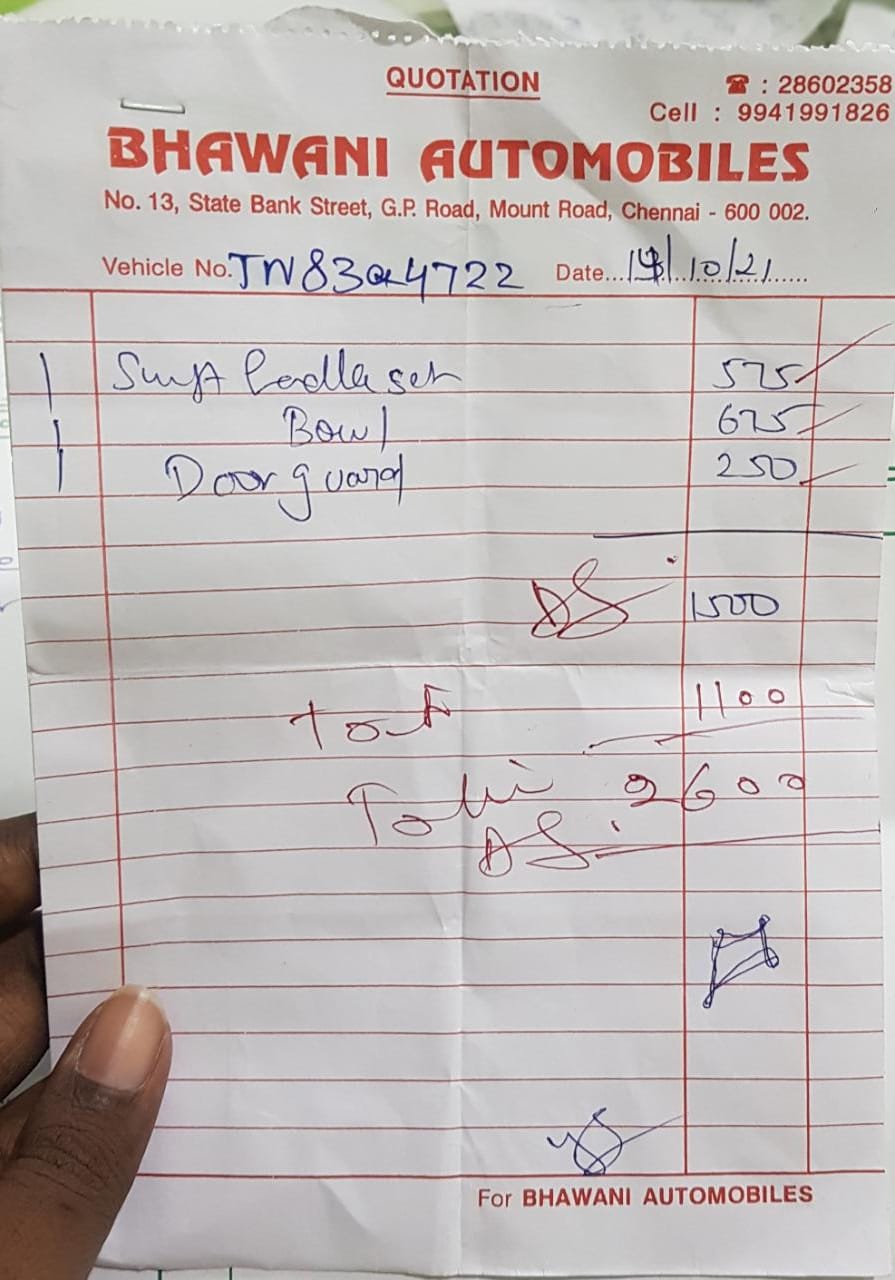 QUOTATION
☎ : 28602358
Cell : 9941991826
BHAWANI AUTOMOBILES
No. 13, State Bank Street, G.P. Road, Mount Road, Chennai - 600 002.
Vehicle No. TN83Q4722 Date... /10/21
1 Swift set 575
1 Bowl 675
1 Door guard 250
1500
1100
2600
For BHAWANI AUTOMOBILES